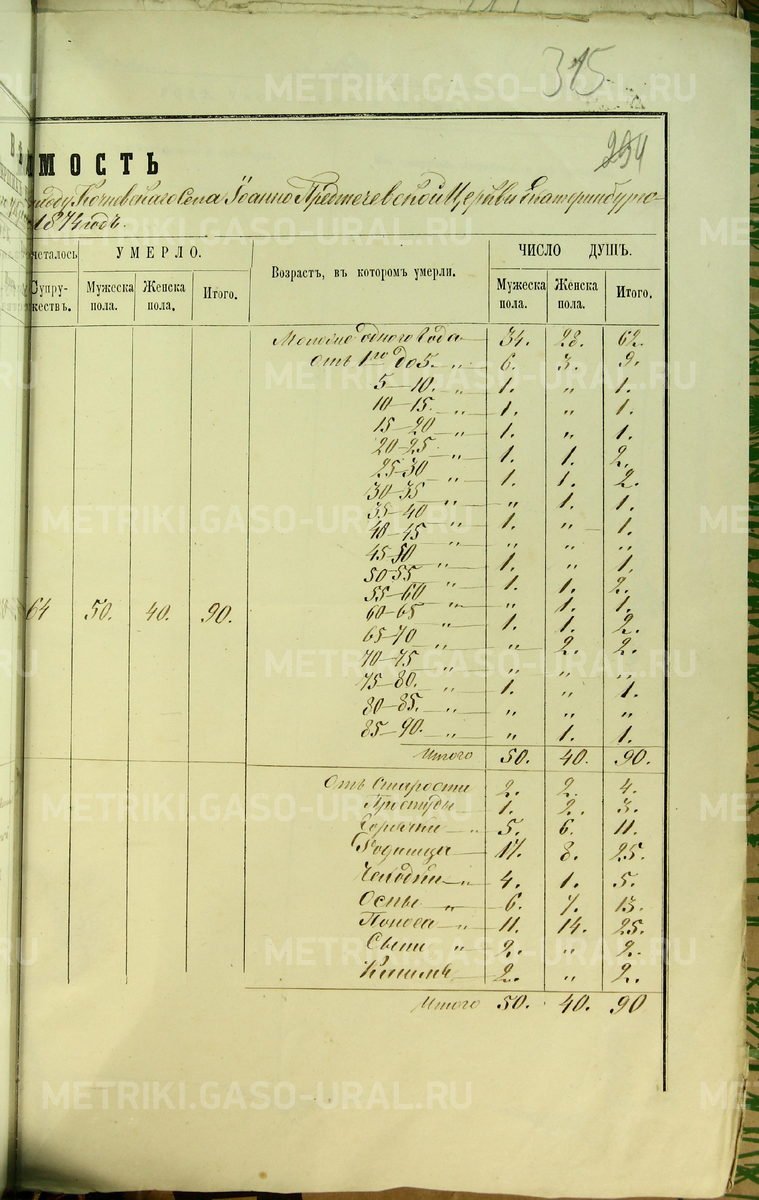 315
294
МОСТЬ
Іоанно Предтечевской Церкви Екатеринбургс-
1874 годъ.
четалось
УМЕРЛО.
Возрастъ, въ которомъ умерли.
ЧИСЛО ДУШЪ.
Супру-
жествъ.
Мужеска пола.
Женска пола.
Итого.
Мужеска пола.
Женска пола.
Итого.
Моложе одного Года 34. 28. 62.
Отъ 1го до 5. „ 6. 3. 9.
5—10. „ 1. „ 1.
10—15. „ 1. „ 1.
15—20 „ 1. „ 1.
20—25 „ 1. 1. 2.
25—30 „ 1. 1. 2.
30—35 „ „ 1. 1.
35—40 „ 1. „ 1.
40—45 „ „ „ „
45—50 „ 1. „ 1.
50—55 „ 1. 1. 2.
55—60 „ „ 1. 1.
64 50. 40. 90.
60—65 „ 1. 1. 2.
65—70 „ „ 2. 2.
70—75 „ „ „ „
75—80. „ 1. „ 1.
80—85. „ „ „ „
85—90. „ „ 1. 1.
Итого 50. 40. 90.
Отъ Старости 2. 2. 4.
Простуды 1. 2. 3.
Горячки „ 5. 6. 11.
Родимца 17. 8. 25.
4. 1. 5.
Оспы „ 6. 7. 13.
Поноса „ 11. 14. 25.
Сыпи „ 2. „ 2.
Кашля 2. „ 2.
Итого 50. 40. 90
METRIKI.GASO-URAL.RU